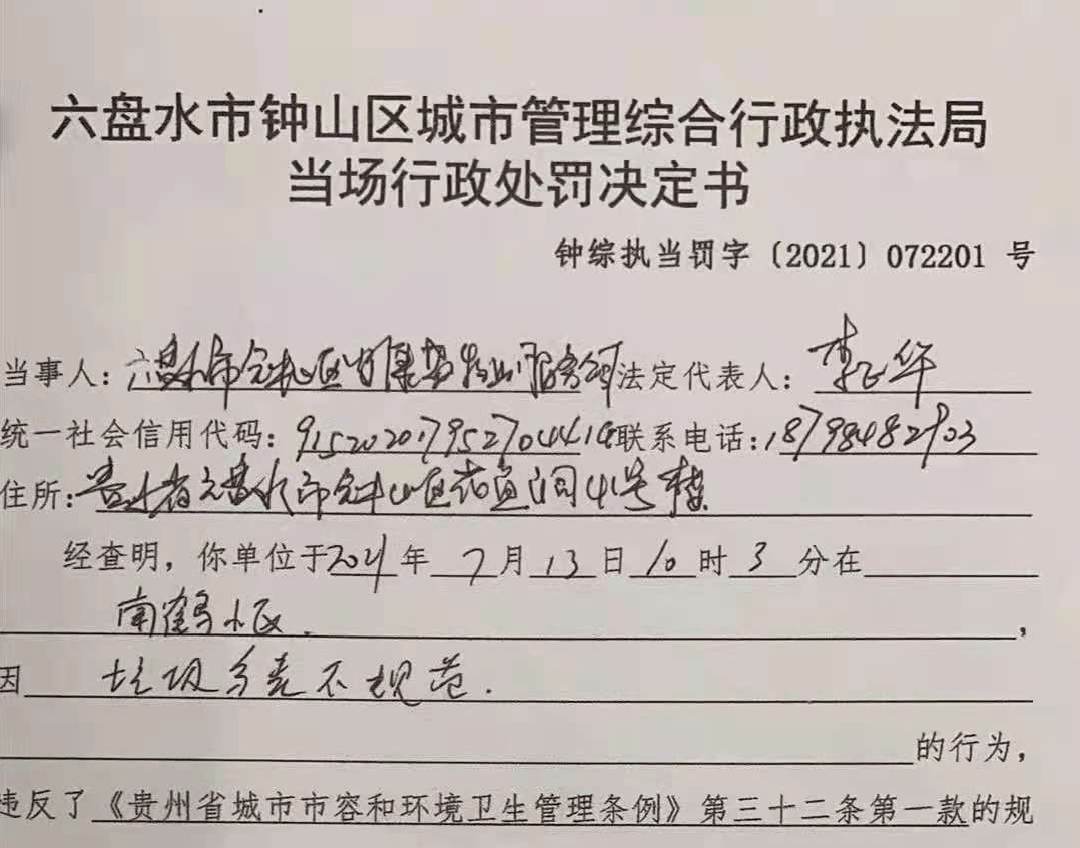 六盘水市钟山区城市管理综合行政执法局
当场行政处罚决定书
钟综执当罚字〔2021〕072201 号
当事人：六盘水市钟山区 物业服务 法定代表人：李 华
统一社会信用代码： 联系电话：18798482903
住所：贵州省六盘水市钟山区花渔洞41号楼
经查明，你单位于2021年 7月13日10时3分在
南鹤小区，
因 垃圾分类不规范.
的行为，
违反了《贵州省城市市容和环境卫生管理条例》第三十二条第一款的规